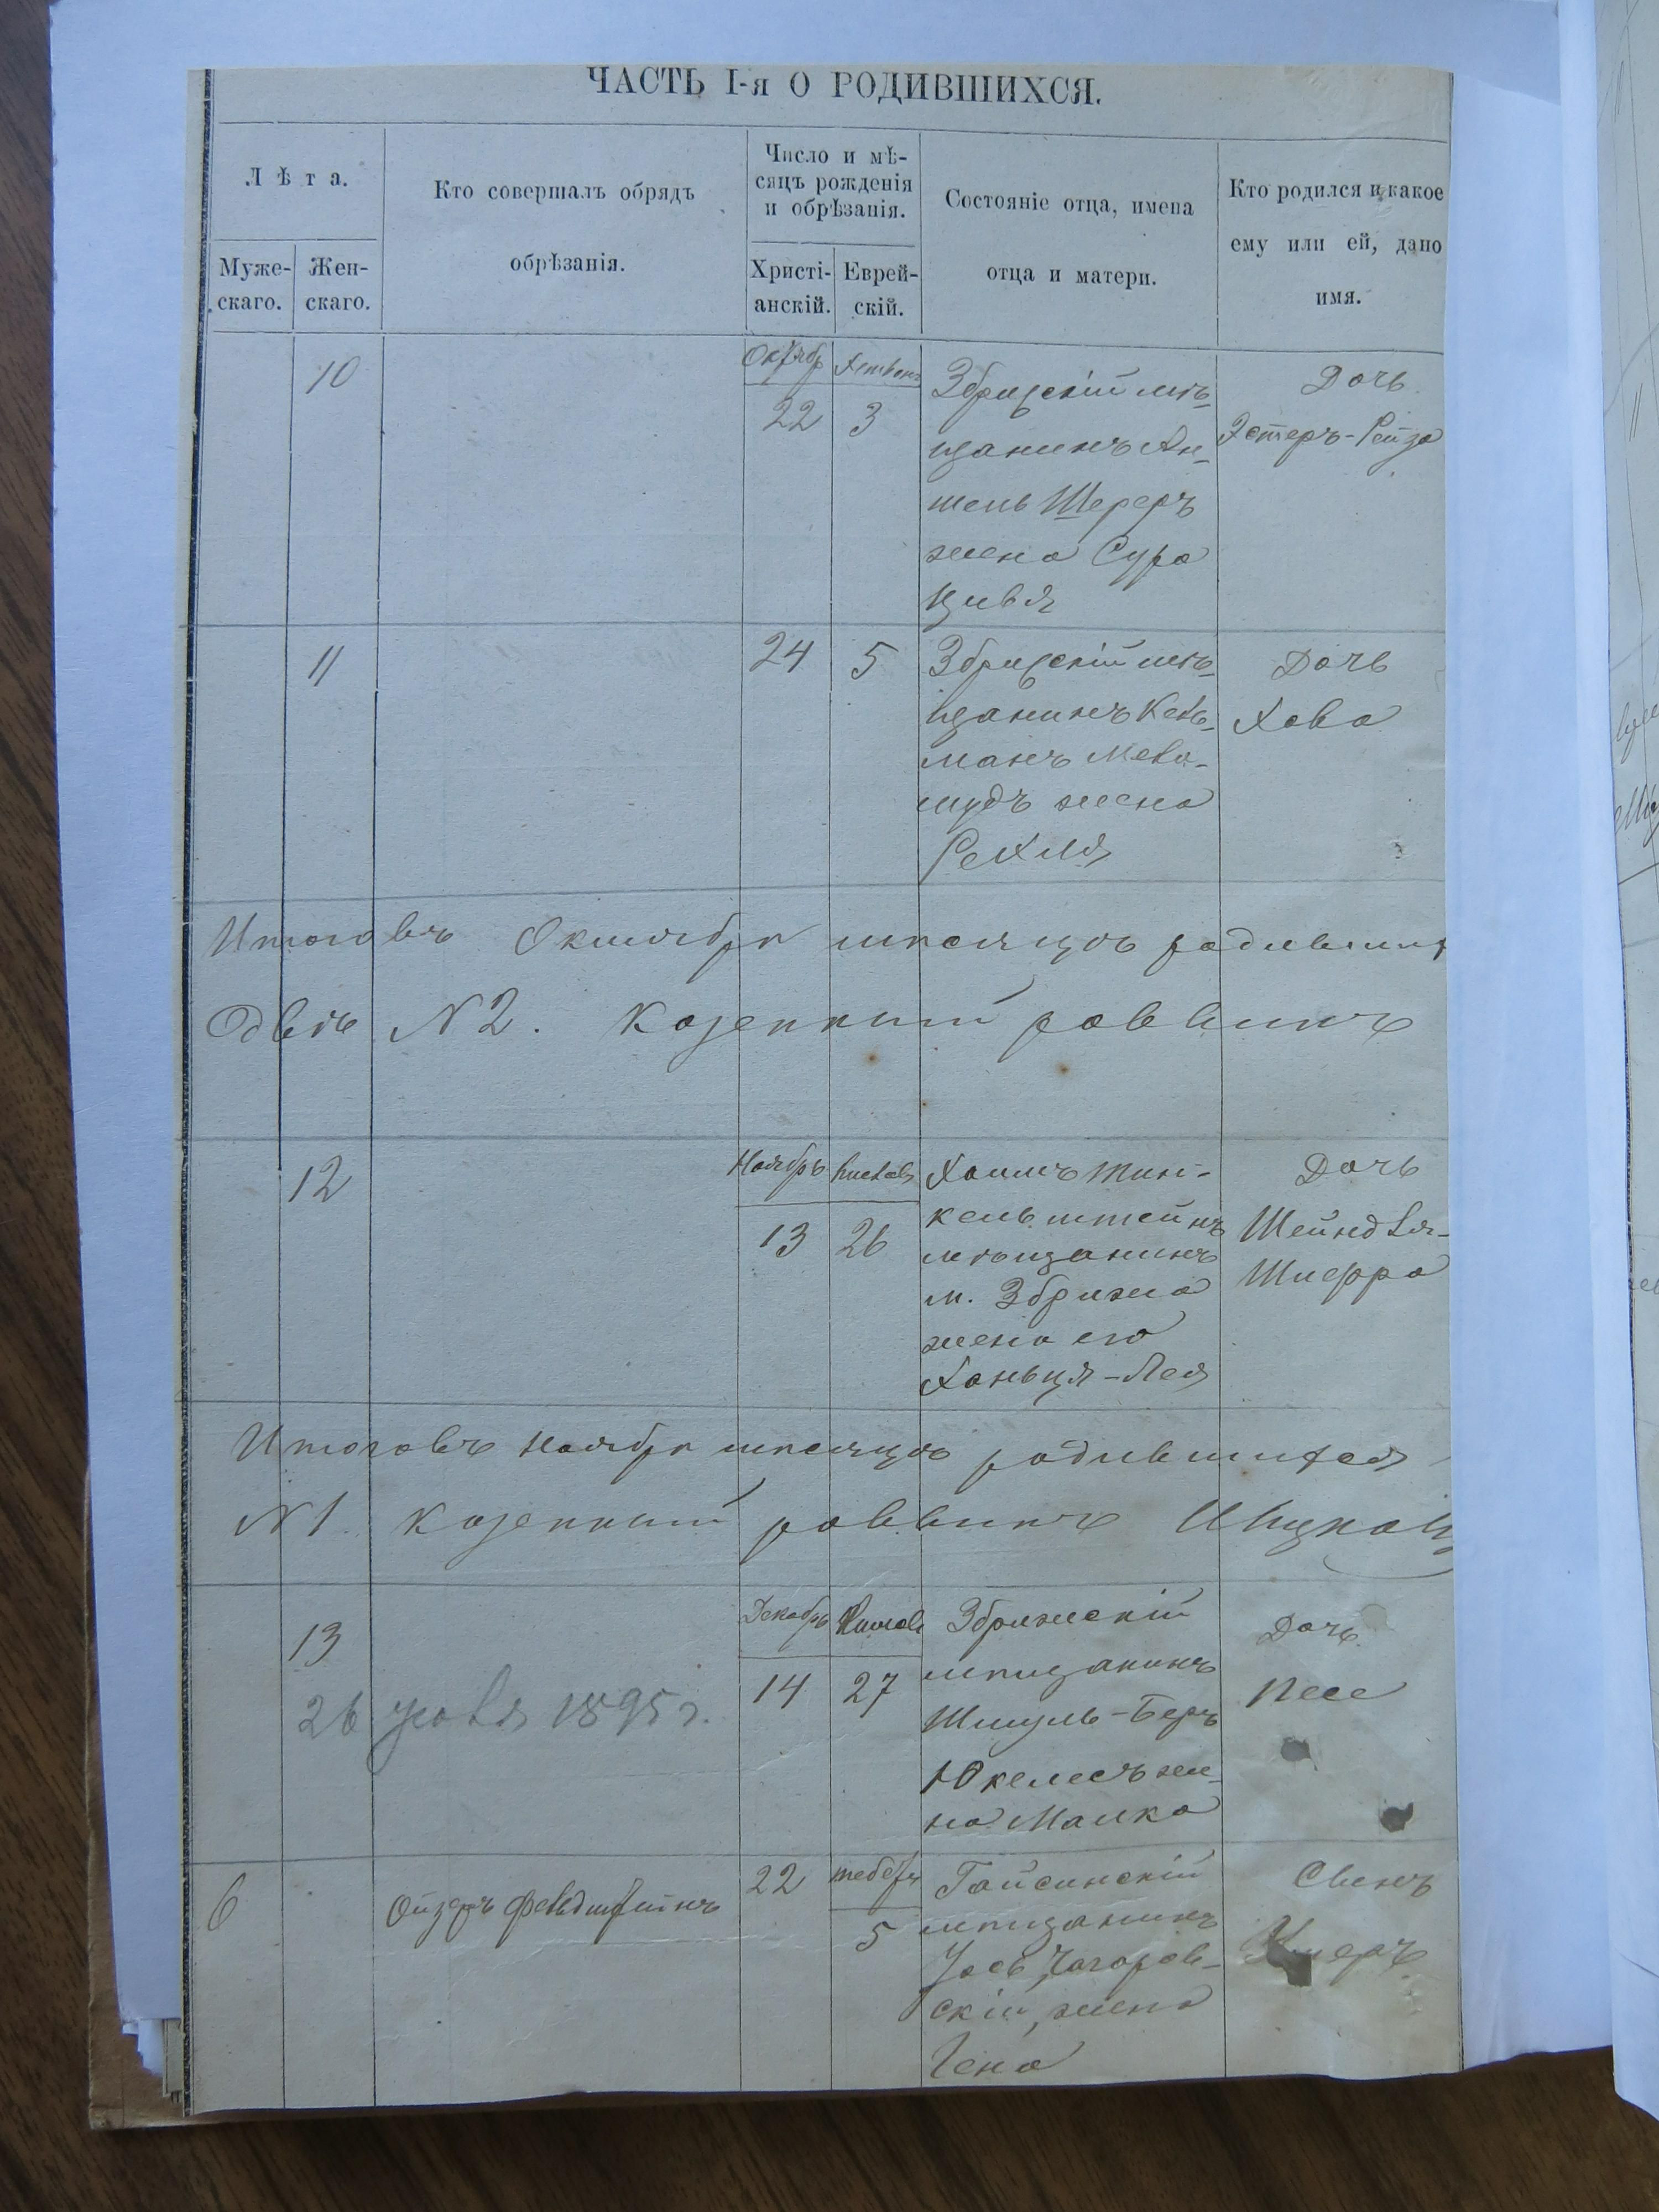 ЧАСТЬ I-я О РОДИВШИХСЯ.
Лѣта.
Муже-
скаго.
Жен-
скаго.
Кто совершалъ обрядъ
обрѣзанія.
Число и мѣ-
сяцъ рожденія
и обрѣзанія.
Христі-
анскій.
Еврей-
скій.
Состояніе отца, имена
отца и матери.
Кто родился и какое
ему или ей, дано
имя.
10
Октябр
22
3
Збризскій мѣ-
щанинъ Ан-
шель Шереръ
жена Сура
Цивья
Дочь
Эстеръ-Рейза
11
24
5
Збризскій мѣ-
щанинъ Кель-
манъ
жена
Рехля
Дочь
Хова
Итого въ Октябрѣ мѣсяцѣ родивших
Двѣ N2. Казенный раввинъ
12
Ноябрь
13
26
Хаимъ
мѣщанинъ
м. Збрижа
жена его
Ханьця-Лея
Дочь
Шейндля-
Шифра
Итого въ Ноябрѣ мѣсяцѣ родившихся
N1. Казенный раввинъ
13
26 1895 г.
Декабрь
14
27
Збрижскій
мѣщанинъ
Шмуль-Беръ
Юкелесъ же-
на Малка
Дочь
Песе
6
Ойзеръ
22
тебетъ
5
Гайсинскій
мѣщанинъ
скій, жена
Гена
Сынъ